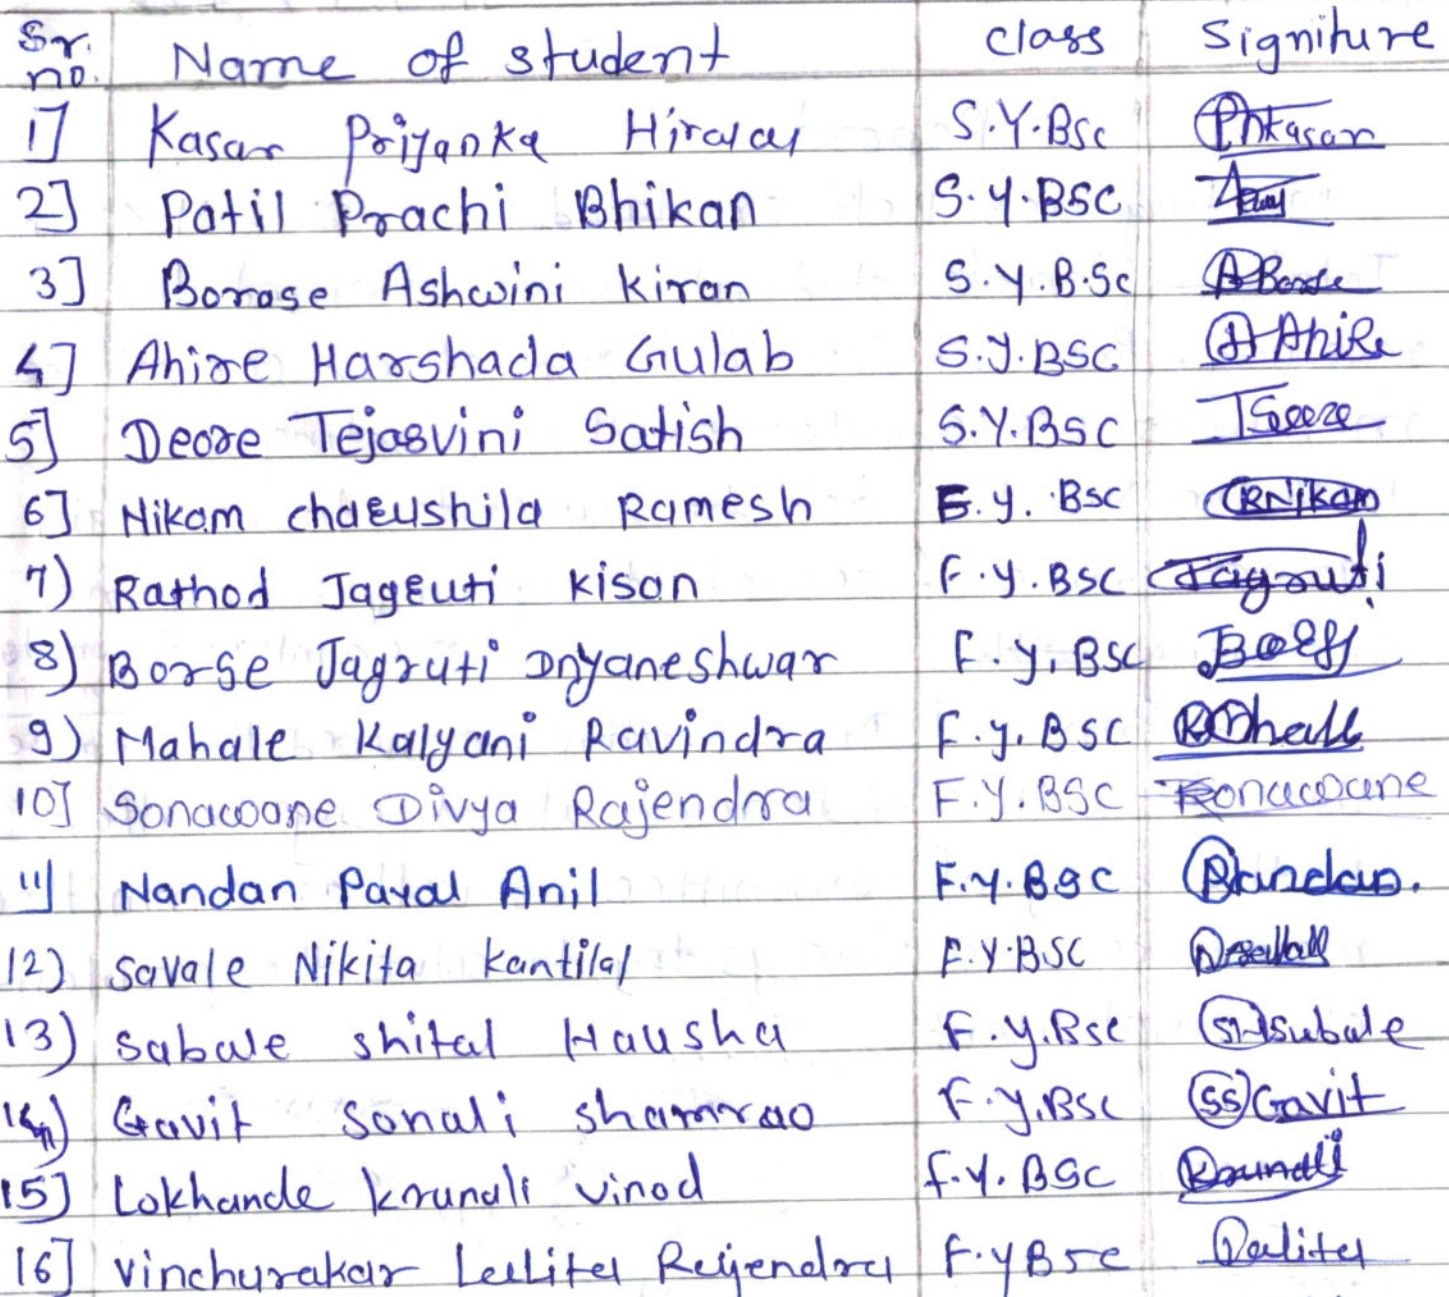 Sr. no. Name of student class Signiture
1] Kasar Priyanka Hiralal S.Y.BSc PhKasar
2] Patil Prachi Bhikan S.Y.BSC
3] Borase Ashwini kiran S.Y.B.Sc ABorse
4] Ahire Harshada Gulab S.Y.BSC HAhire
5] Deore Tejasvini Satish S.Y.BSC
6] Nikam chaRushila Ramesh F.Y.BSC RNikam
7) Rathod JagRuti kison F.Y.BSC Jagruti
8) Borse Jagruti Dnyaneshwar F.Y.BSC
9) Mahale Kalyani Ravindra F.Y.BSC
10] Sonawane Divya Rajendra F.Y.BSC
11] Nandan Payal Anil F.Y.BSC
12) Savale Nikita kantilal F.Y.BSC
13) Sabale shital Hausha F.Y.BSc SHSabale
14) Gavit Sonali shamrao F.Y.BSc SSGavit
15] Lokhande krunali vinod F.Y.BSc Krunali
16] Vinchurakar Lalita Rajendra F.YBSc Lalita